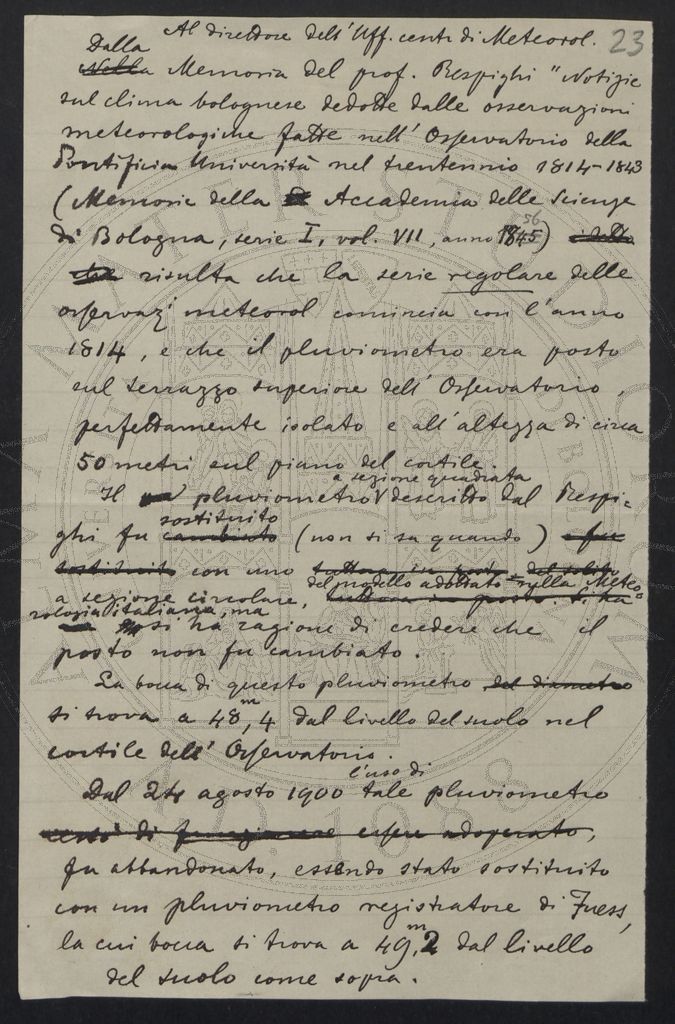 23
Al direttore dell'Uff. centr. di Meteorol.
Dalla
Nella Memoria del prof. Respighi "Notizie
sul clima bolognese dedotte dalle osservazioni
meteorologiche fatte nell'Osservatorio della
Pontificia Università nel trentennio 1814-1843
(Memorie della Accademia delle Scienze
56
di Bologna, serie I, vol. VII, anno 1845)
risulta che la serie regolare delle
osservaz meteorol comincia con l'anno
1814, e che il pluviometro era posto
sul terrazzo superiore dell'Osservatorio,
perfettamente isolato e all'altezza di circa
50 metri sul piano del cortile.
a sezione quadrata
Il pluviometro descritto dal Respi-
sostituito
ghi fu cambiato (non si sa quando) fu
sostituito con uno
del modello adottato nella Meteo-
a sezione circolare,
rologia italiana, ma
si ha ragione di credere che il
posto non fu cambiato.
La bocca di questo pluviometro del diametro
si trova a 48,m4 dal livello del suolo nel
cortile dell'Osservatorio.
l'uso di
Dal 24 agosto 1900 tale pluviometro
cessò di funzionare essere adoperato,
fu abbandonato, essendo stato sostituito
con un pluviometro registratore di Fuess,
la cui bocca si trova a 49,m2 dal livello
del suolo come sopra.